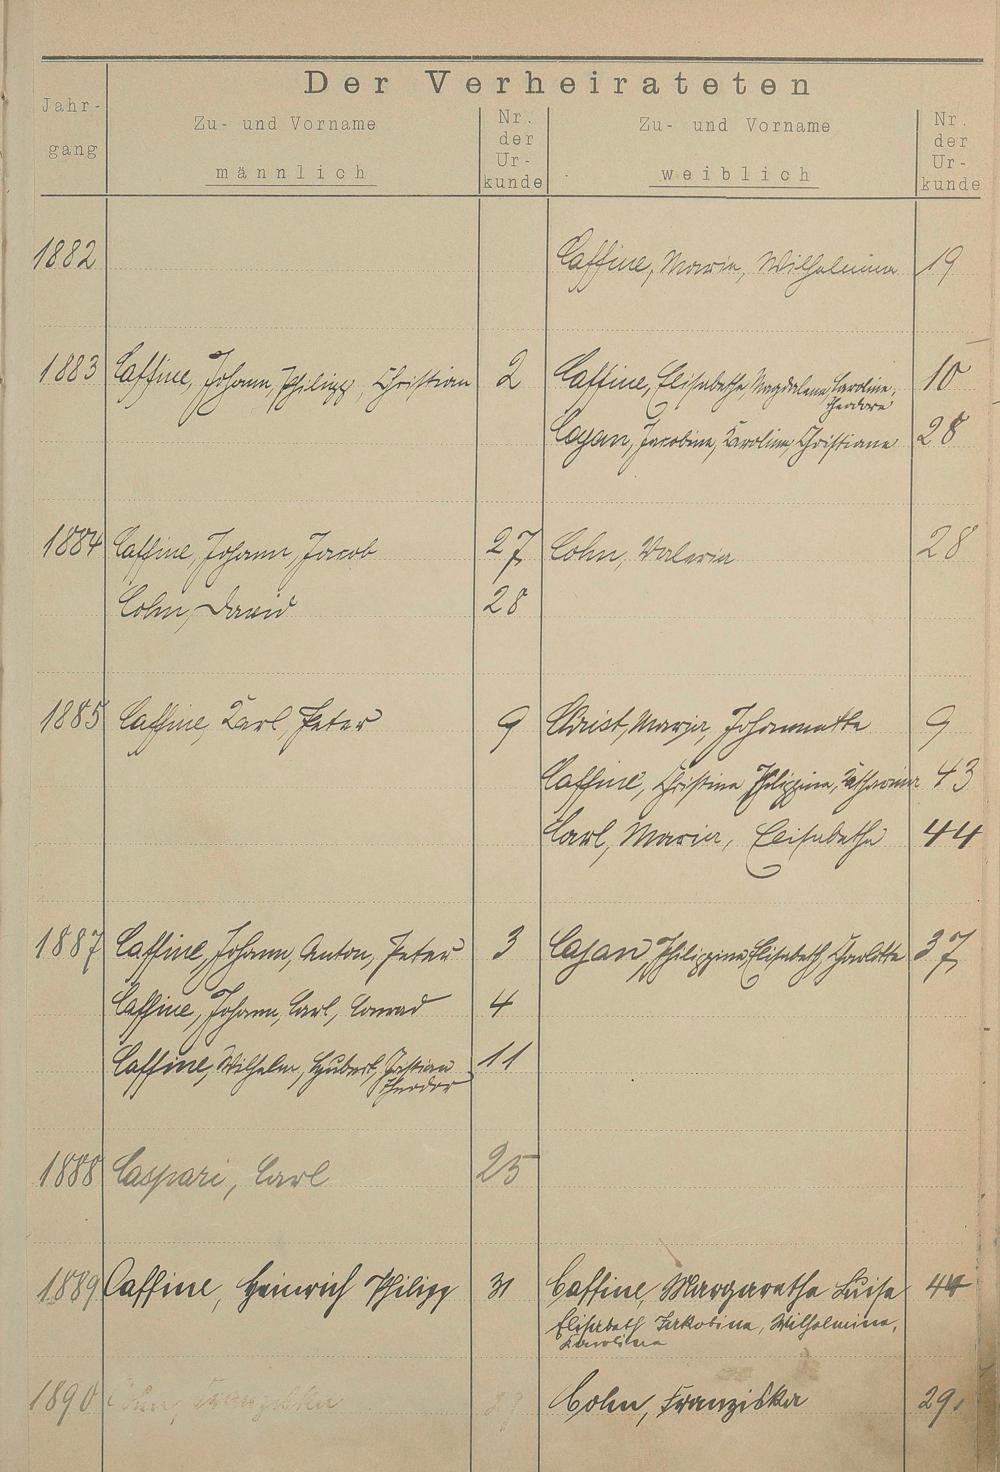 Der Verheirateten
Jahr-
gang
Zu- und Vorname
männlich
Nr.
der
Ur-
kunde
Zu- und Vorname
weiblich
Nr.
der
Ur-
kunde
1882 Caffine, Maria, Wilhelmina 19
1883 Caffine, Johann, Philipp, Christian 2 Caffine, Elisabetha Magdalena Caroline, 10
Theodora
Cajan, Jacobina, Karolina, Christiane 28
1884 Caffine, Johann, Jacob 27 Cohn, Valeria 28
Cohn, David 28
1885 Caffine, Karl, Peter 9 Christ, Maria, Johannette 9
Caffine, Christina Philippina, Katharina 43
Carl, Maria, Elisabetha 44
1887 Caffine, Johann, Anton, Peter 3 Cajan, Philippina, Elisabeth, Charlotte 37
Caffine, Johann, Carl, Conrad 4
Caffine, Wilhelm, Hubert, 11
Theodor
1888 Caspari, Carl 25
1889 Caffine, Heinrich Philipp 31 Caffine, Margaretha Luise 44
Elisabeth Jakobina, Wilhelmina,
Karolina
1890 Cohn, Franziska 29 Cohn, Franziska 29.